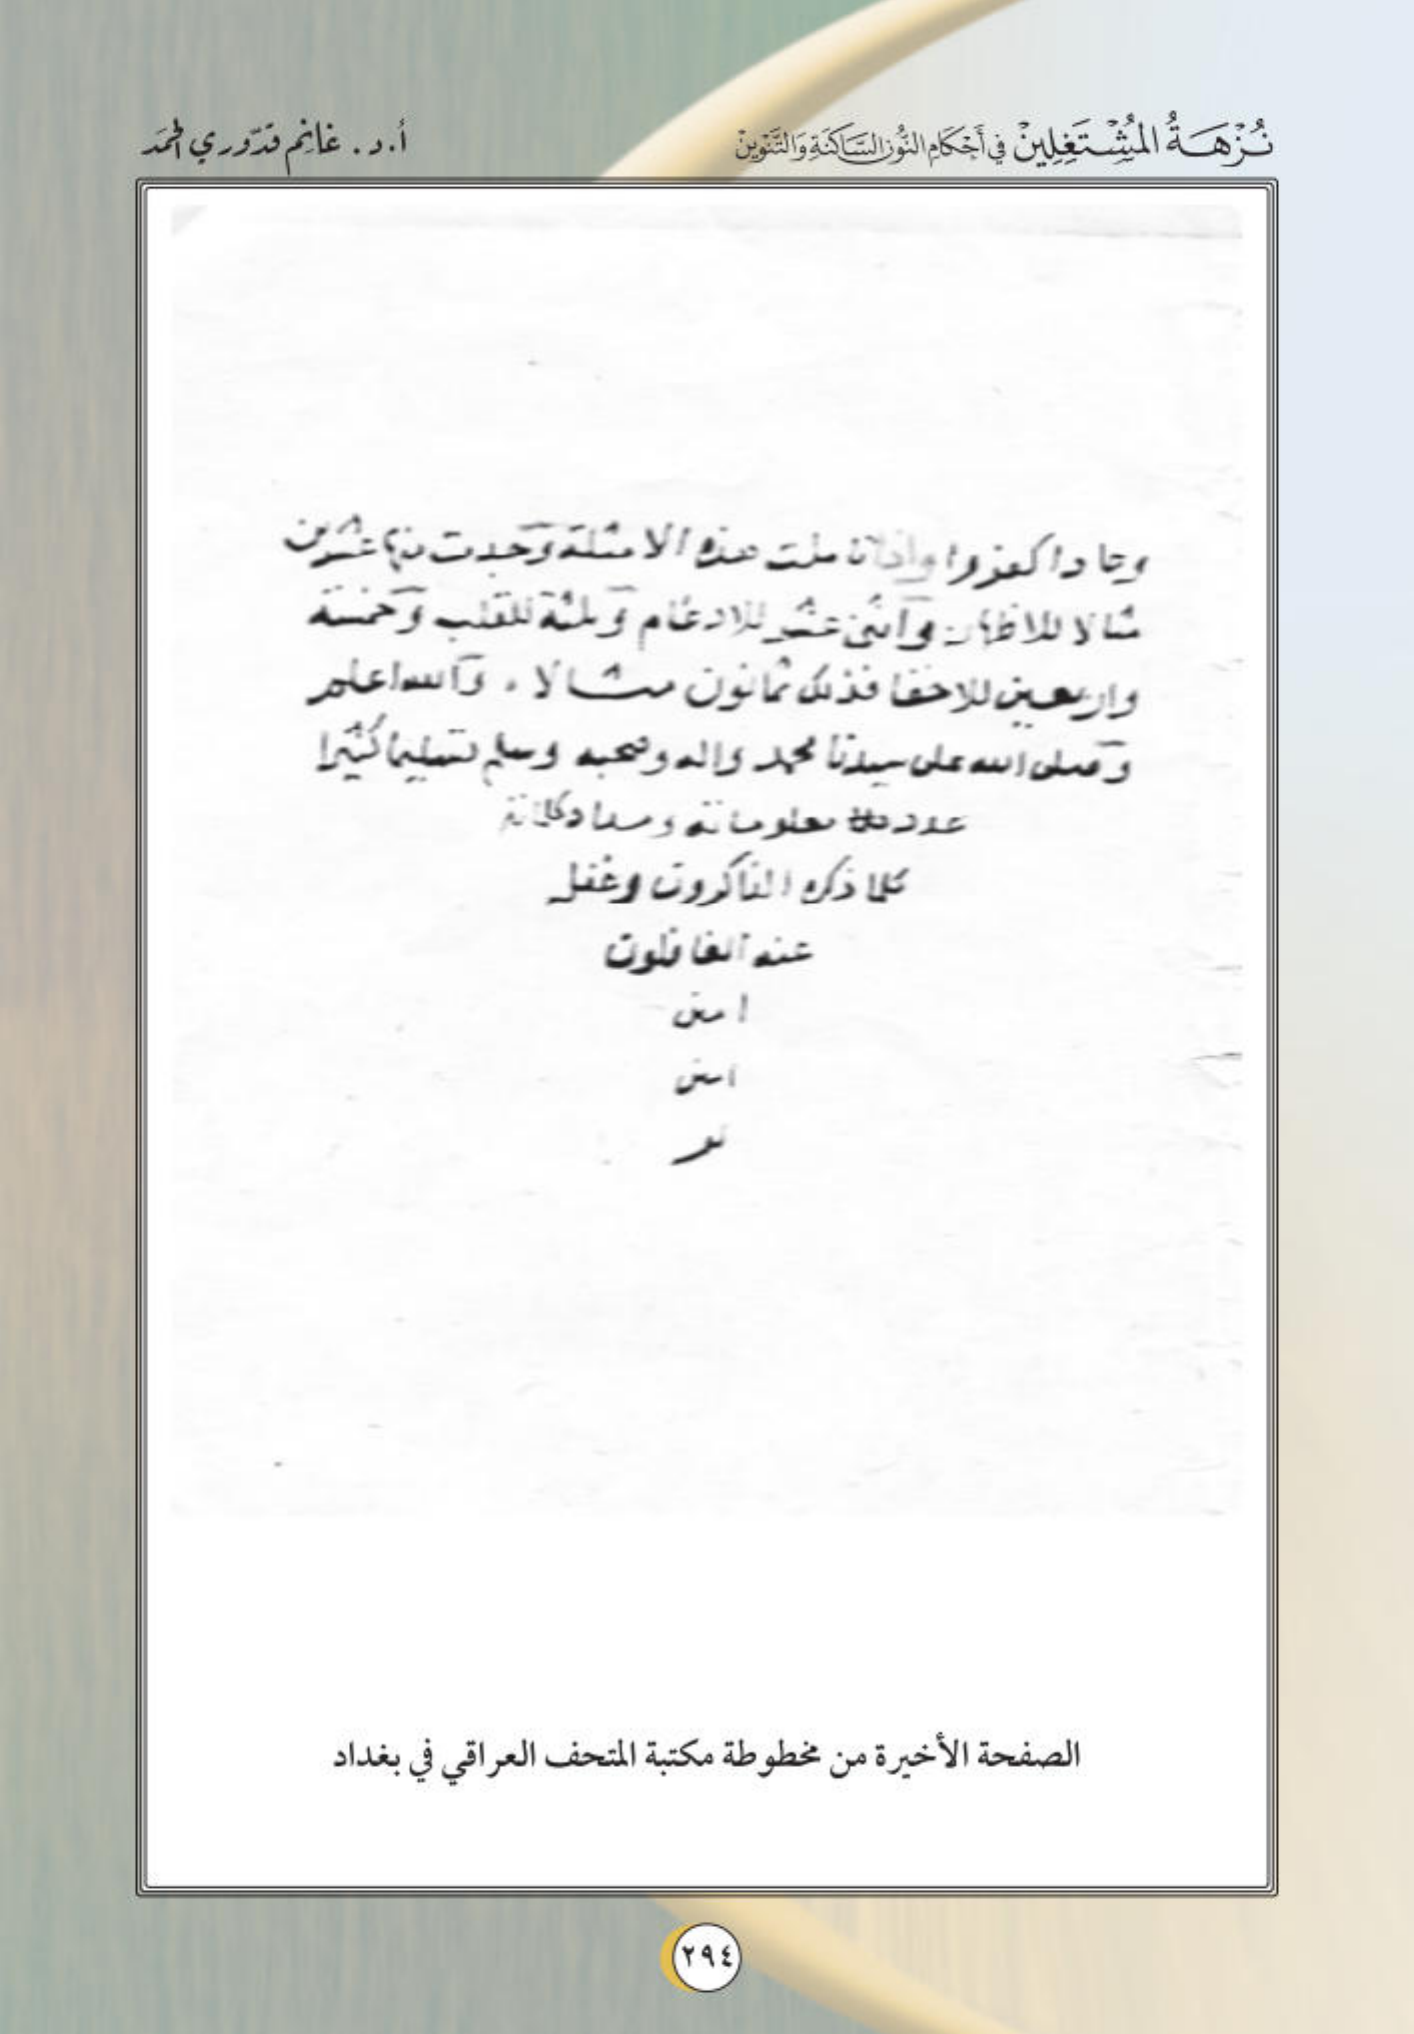 نُزْهَةُ المُشْتَغِلِينْ في أَحْكَامِ النُّونِ السَّاكِنَةِ وَالتَّنْوِينْ
أ.د. غانِم قدّوري الحمَد
كفروا واذا تاملت هذه الامثلة وَجدت عشرين
مثالا للاظهار وآثنى عشر للادغام وَثلثة للقلب وَخمسة
واربعين للاخفا فذلك ثمانون مثالا، وَالله اعلم
وَصلى الله على سيدنا محمد واله وصحبه وسلم تسليما كثيرا
عدد معلوماته ومداد كلماته
كلما ذكره الذاكرون وغفل
عنه الغافلون
امين
امين
الصفحة الأخيرة من مخطوطة مكتبة المتحف العراقي في بغداد
٢٩٤